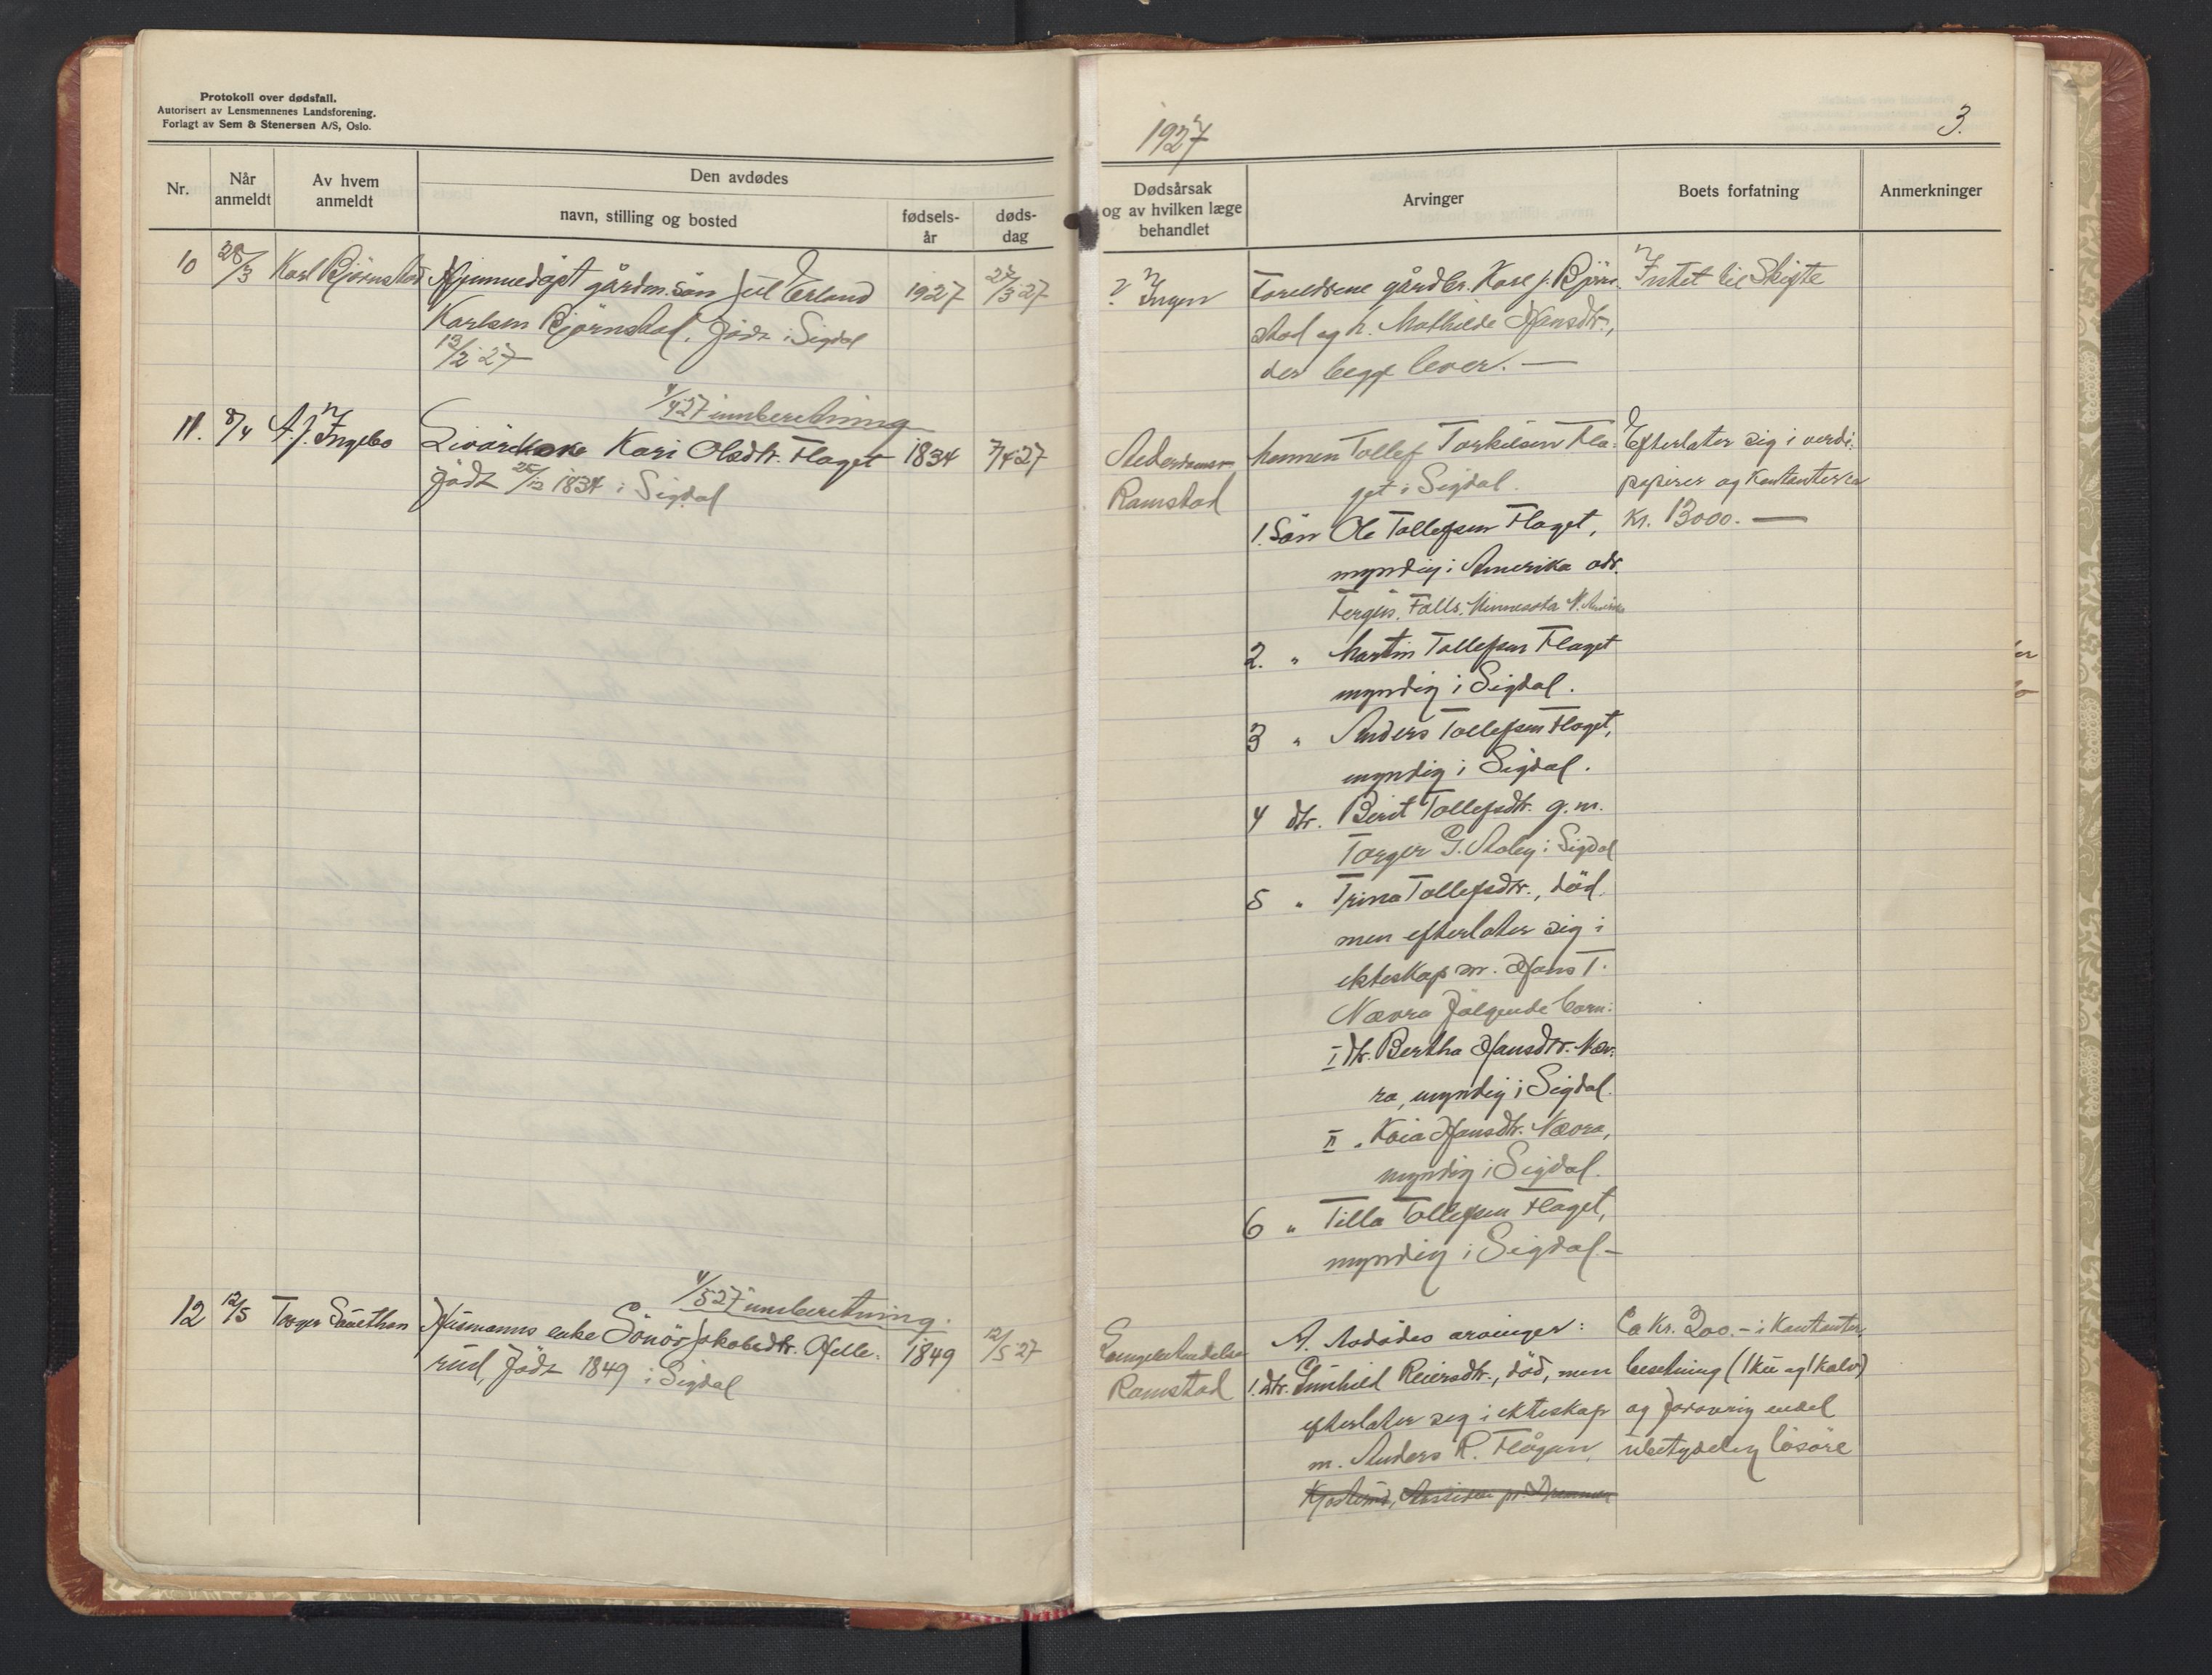 Protokoll over dødsfall.
Autorisert av Lensmennenes Landsforening.
Forlagt av Sem & Stenersen A/S, Oslo.
Nr.
Når anmeldt
Av hvem anmeldt
Den avdødes
navn, stilling og bosted
fødsels-år
døds-dag
10 28/3 Karl Bjørnstad Hjemmedøpt gårdm.sön Juel Erland 1927 27/3 27
Karlsen Björnstad. Född i Sigdal
13/2 27
4/4 27 innberetning
11. 8/4 A. J. Ingebo Livörkone Kari Olsdtr. Flaget 1834 7/4 27
född 25/12 1834 i Sigdal
4/5 27 innberetning.
12 12/5 Torger Sandthan Husmanns enke Sönöv Jakobsdtr. Helle- 1849 12/5 27
rud, född 1849 i Sigdal
1927
3.
Dødsårsak
og av hvilken læge
behandlet
Arvinger
Boets forfatning
Anmerkninger
? Ingen
Foreldrene gårdbr. Karl J. Björn-
stad og h. Mathilde Hansdtr.,
der begge lever. —
Intet til Skifte
Alderdoms
Ramstad
Mannen Tollef Torkilsen Fla-
get i Sigdal.
1. Sön Ole Tollefsen Flaget,
myndig i Amerika adr.
Fergus Falls. Minnesota N. Amerika
2. " Martin Tollefsen Flaget
myndig i Sigdal.
3 " Anders Tollefsen Flaget,
myndig i Sigdal.
4 dtr. Berit Tollefsdtr. g. m.
Torger G. Aasley i Sigdal
5 " Trina Tollefsdtr., död.
men efterlater sig i
ekteskap m. Hans T.
Nævra fölgende barn:
I dtr. Bertha Hansdtr. Næv-
ra, myndig i Sigdal.
II " Kaia Hansdtr. Nævra,
myndig i Sigdal.
6 " Tilla Tollefsen Flaget,
myndig i Sigdal. —
Efterlater sig i verdi-
papirer og Kontanter ca
Kr. 13000. —
Lungebetendelse
Ramstad
A. Avdödes arvinger:
1. dtr. Gunhild Reiersdtr., död, men
efterlater seg i ekteskap
m. Anders R. Flågan,
Ca Kr. 200.- i Kontanter,
besetning (1 ku og 1 kalv)
og forövrig endel
ubetydelig lösöre